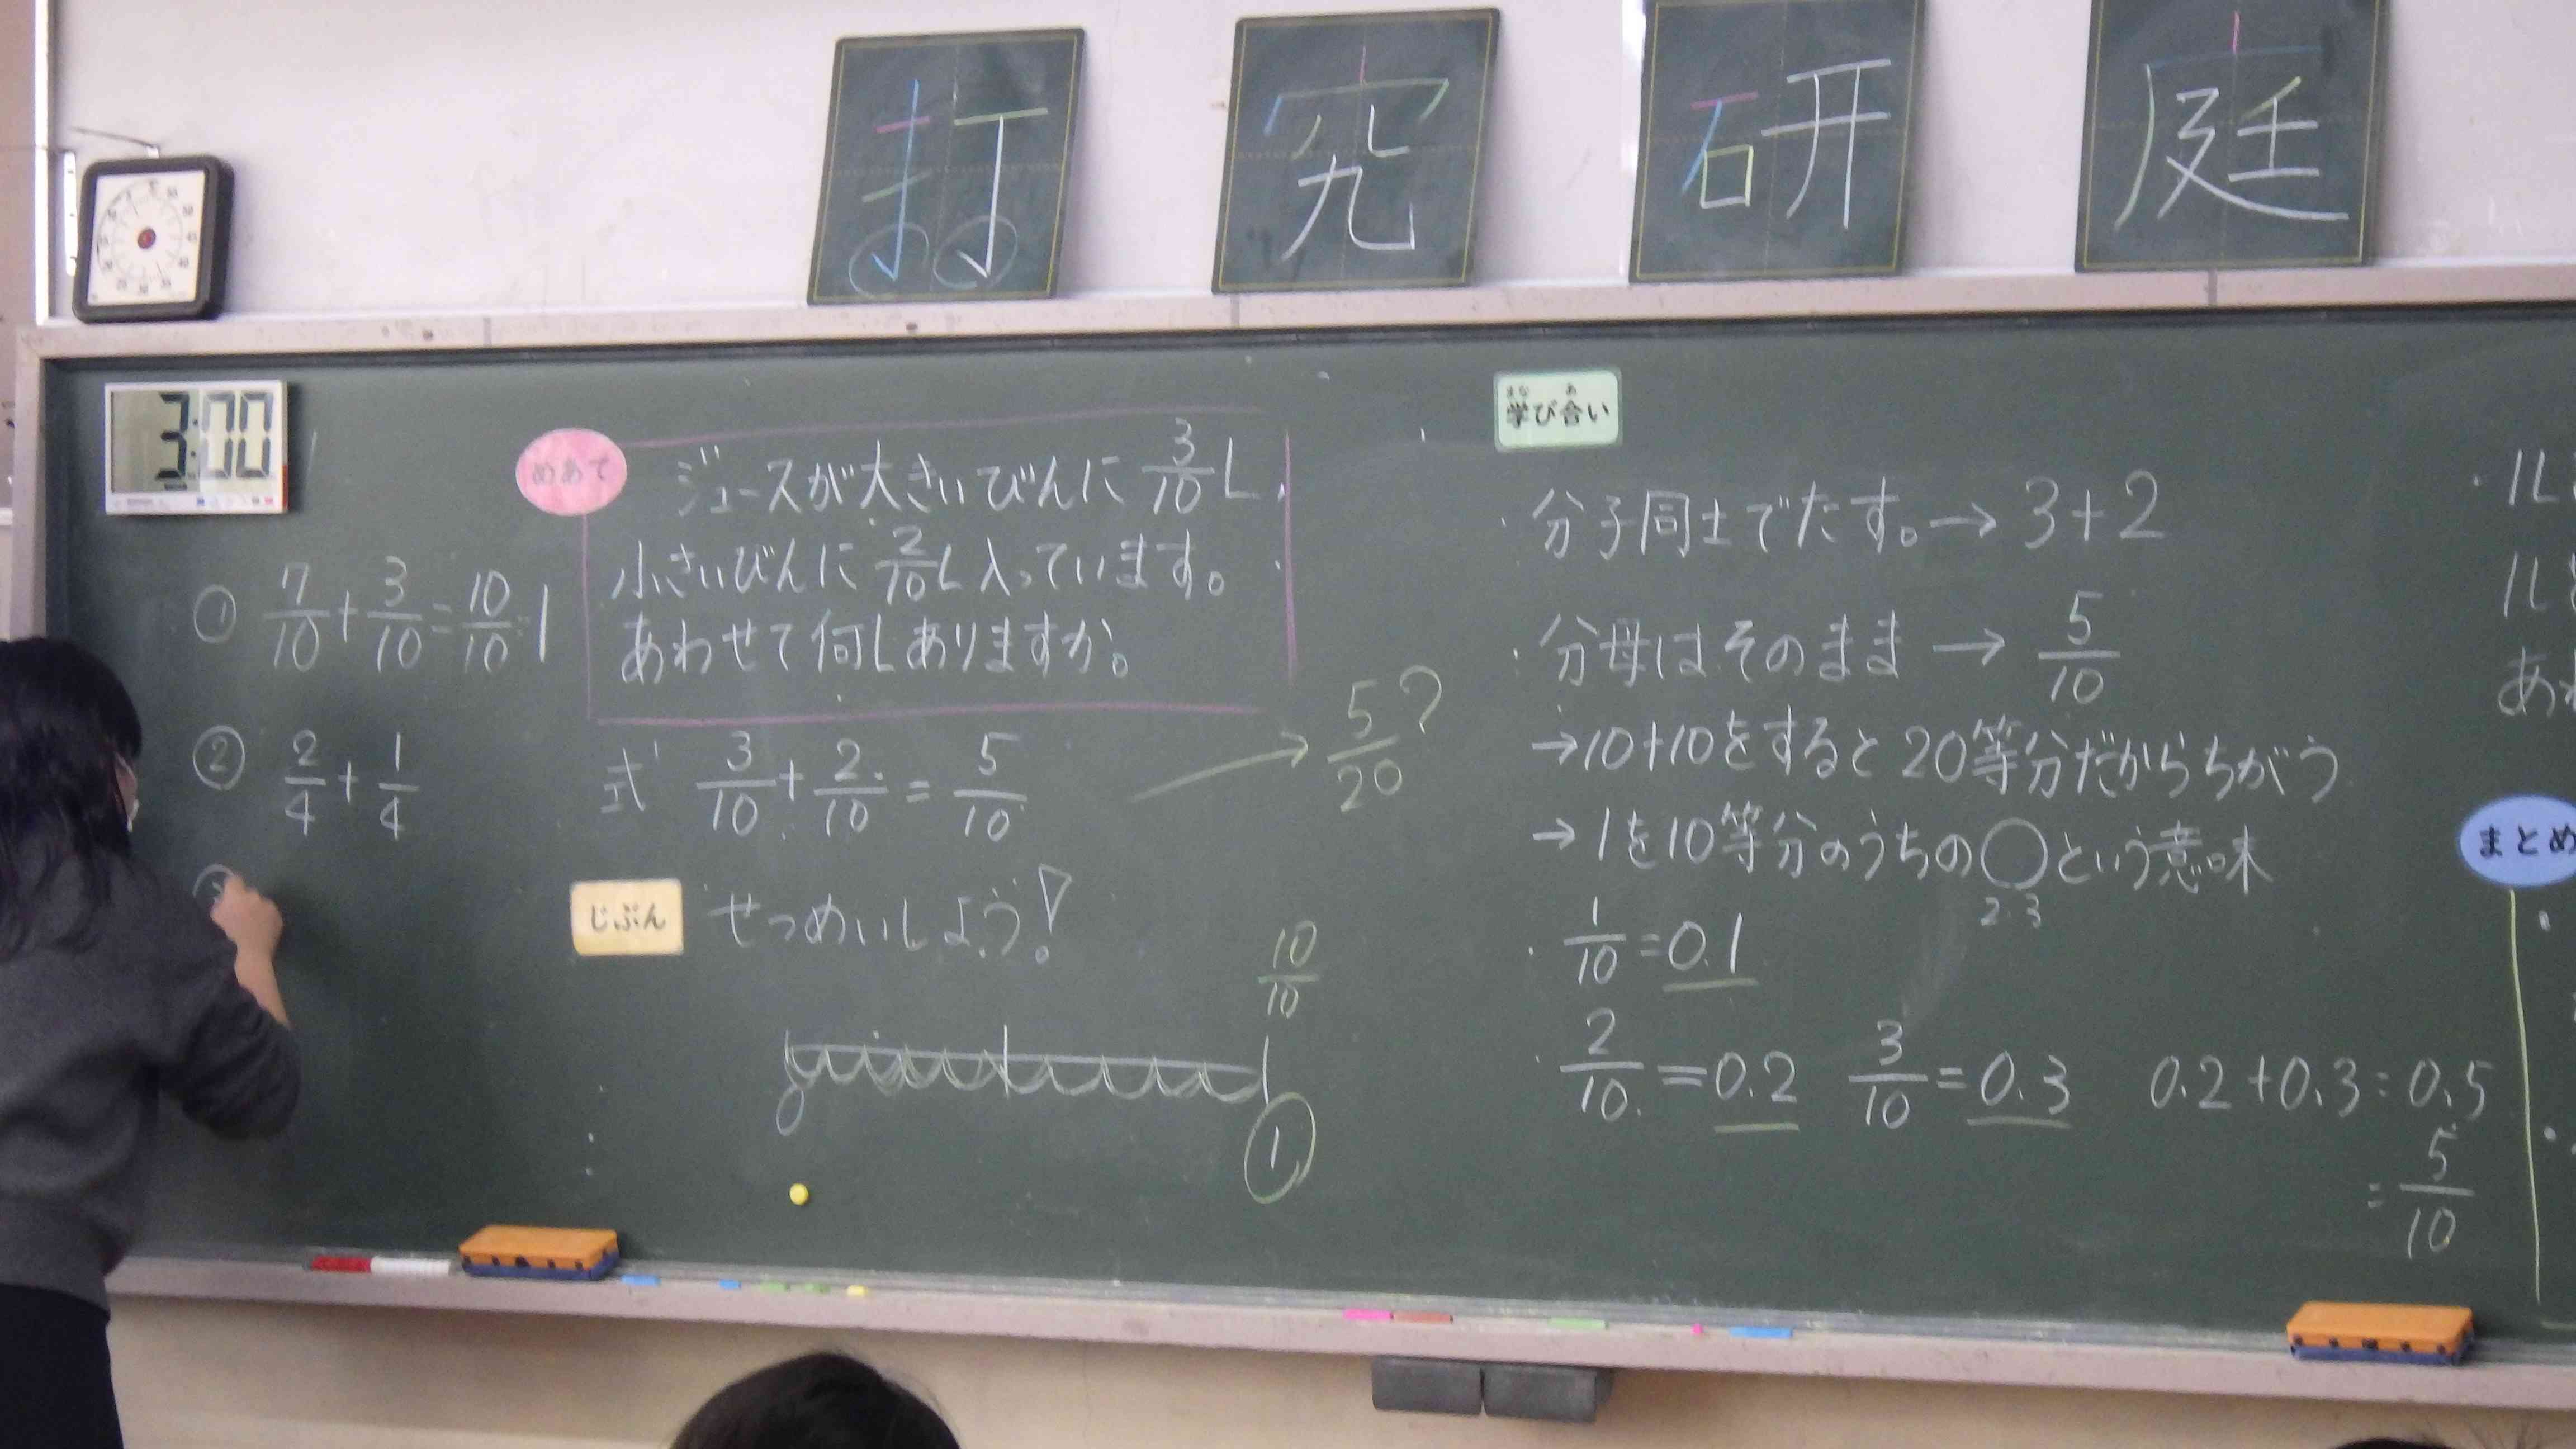 打 究 研 庭
3:00
めあて
ジュースが大きいびんに 3/10 L、
小さいびんに 2/10 L入っています。
あわせて何Lありますか。
① 7/10 + 3/10 = 10/10 = 1
② 2/4 + 1/4
式 3/10 + 2/10 = 5/10
5/20 ?
じぶん
せつめいしよう!
10/10
0
1
学び合い
まな あ
・分子同士でたす。→ 3+2
・分母はそのまま → 5/10
→10+10をすると20等分だからちがう
→1を10等分のうちの◯という意味
2.3
・1/10 = 0.1
・2/10 = 0.2 3/10 = 0.3 0.2+0.3=0.5
= 5/10
・1L
1L
まとめ